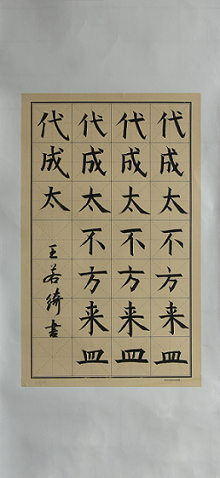 代成太不方来皿
代成太不方来皿
代成太不方来皿
代成太
王若绮书